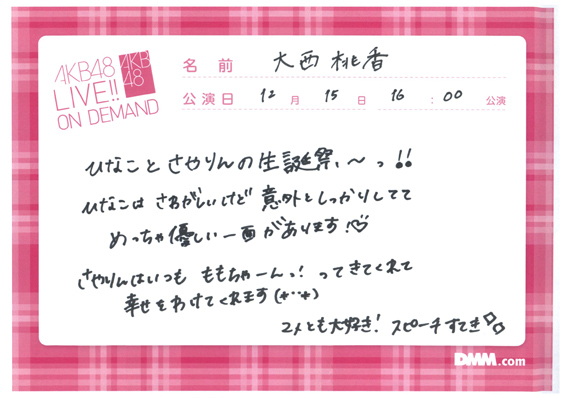 AKB48
LIVE!!
ON DEMAND
AKB
48
名前 大西桃香
公演日 12月 15日 16:00 公演
ひなことさやりんの生誕祭、〜っ!!
ひなこは さわがしいけど 意外としっかりしてて
めっちゃ優しい一面があります!♡
さやりんはいつも ももちゃーんっ! ってきてくれて
幸せをわけてくれます(+··+)
2人とも大好き! スピーチすてき
DMM.com